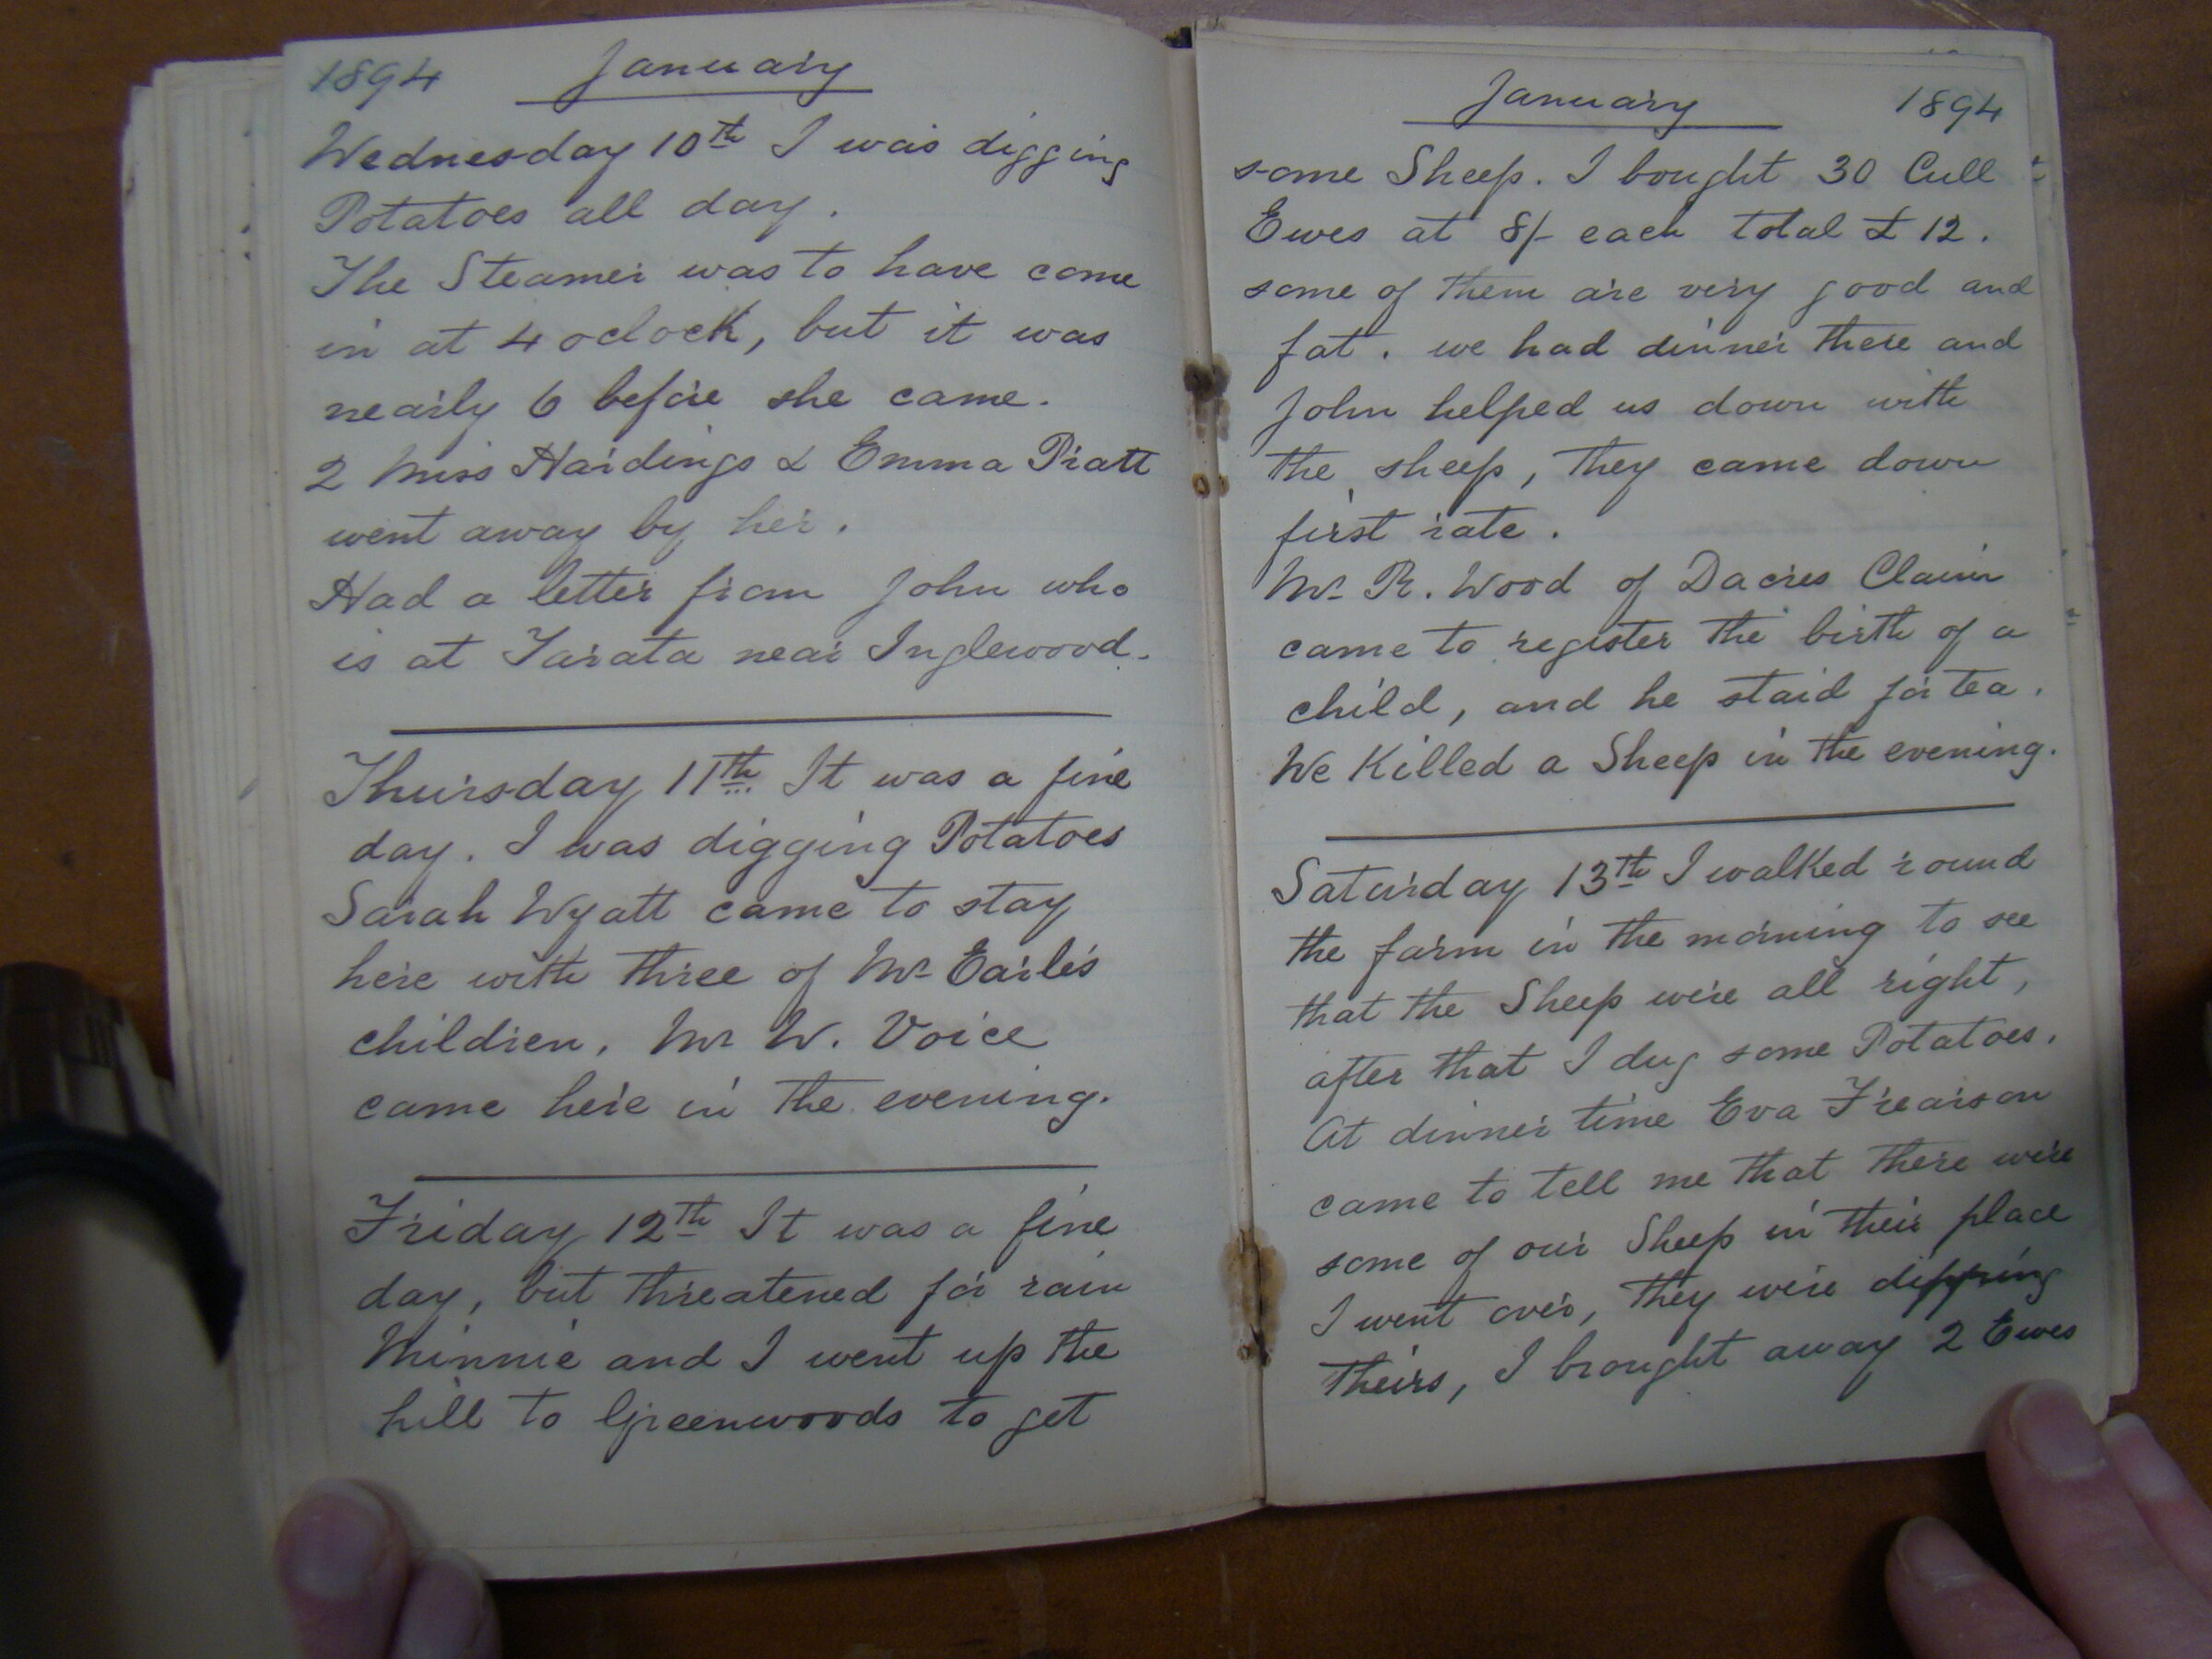 1894 January
Wednesday 10th I was digging
Potatoes all day.
The Steamer was to have come
in at 4 oclock, but it was
nearly 6 before she came.
2 Miss Hardings & Emma Pratt
went away by her.
Had a letter from John who
is at Tarata near Inglewood.
Thursday 11th It was a fine
day. I was digging Potatoes
Sarah Wyatt came to stay
here with three of Mr Earle's
children, Mr W. Voice
came here in the evening.
Friday 12th It was a fine
day, but threatened for rain
Minnie and I went up the
hill to Greenwoods to get
January 1894
some Sheep. I bought 30 Cull
Ewes at 8/- each total £12.
some of them are very good and
fat. we had dinner there and
John helped us down with
the sheep, they came down
first rate.
Mr R. Wood of Dacres Claim
came to register the birth of a
child, and he staid for tea.
We Killed a Sheep in the evening.
Saturday 13th I walked round
the farm in the morning to see
that the Sheep were all right,
after that I dug some Potatoes.
At dinner time Eva Frearson
came to tell me that there were
some of our Sheep in their place
I went over, they were dipping
theirs, I brought away 2 Ewes